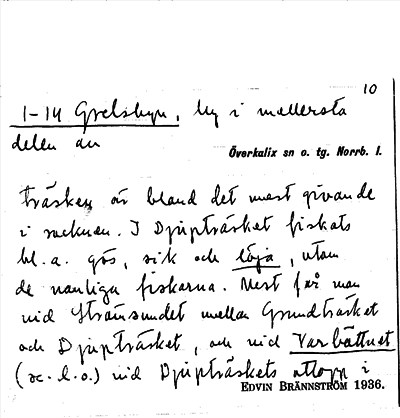 10
1-14 Grelsbyn, by i mellersta
delen av
Överkalix sn o. tg. Norrb. l.
träsken är bland det mest givande
i socknen. I Djupträsket fiskats
bl. a. gös, sik och löja, utom
de vanliga fiskarna. Mest får man
vid Stränsundet mellan Grundträsket
och Djupträsket, och vid Varbåttnet
(sc. l. o.) vid Djupträskets utlopp i
EDVIN BRÄNNSTRÖM 1936.